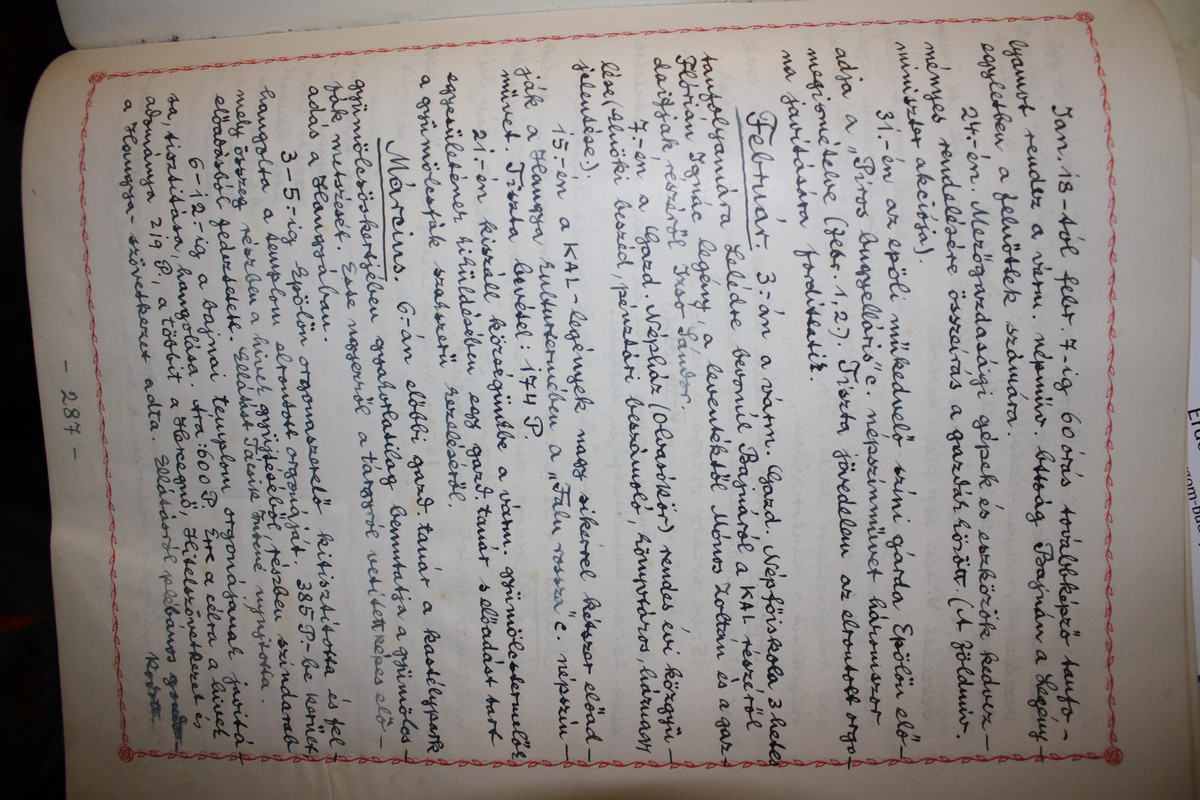 Jan. 18-tól febr. 7-ig 60 órás továbbképző tanfo-
lyamot rendez a várm. népműv. bizottság Bajnán a Legény-
egyletben a felnőttek számára.
24.-én. Mezőgazdasági gépek és eszközök kedvez-
ményes rendelésére összeírás a gazdák között (A földműv.
miniszter akciója).
31.-én az epöli műkedvelő színi gárda Epölön elő-
adja a „Piros bugyelláris" c. népszínművet háromszor
megismételve (febr. 1, 2.). Tiszta jövedelem az elromlott orgo-
na javítására fordíttatik.
Február 3.-án a várm. Gazd. Népfőiskola 3 hetes
tanfolyamára Lelédre bevonul Bajnáról a KAL részéről
Flórián Ignác legény, a leventéktől Mónos Zoltán és a gaz-
daifjak részéről Szor Sándor.
7.-én a Gazd. Népház (Olvasókör) rendes évi közgyű-
lése (elnöki beszéd, pénztári beszámoló, könyvtáros, háznagy
jelentése).
15.-én a KAL-legények nagy sikerrel kétszer előad-
ják a Hangya kultúrtermében a „Falu rossza" c. népszín-
művet. Tiszta bevétel: 174 P.
21.-én kiszáll községünkbe a várm. gyümölcstermelők
egyesületének kiküldésében egy gazd. tanár s előadást tart
a gyümölcsfák szakszerű kezeléséről.
Március. 6-án előbbi gazd. tanár a kastélypark
gyümölcsöskertjében gyakorlatilag bemutatja a gyümölcs-
fák metszését. Este ugyanról a tárgyról vetítettképes elő-
adás a Hangyában.
3-5-ig Epölön orgonaszerelő kitisztította és fel
hangolta a templom elromlott orgonáját. 385 P-be került
mely összeg részben a hívek gyűjtéséből, részben színdarab
előadásból fedeztetett. Ellátást Pácsik Imréné nyujtotta.
6-12-ig a bajnai templom orgonájának javítá-
sa, tisztítása, hangolása. Ára: 600 P. Erre a célra a hívek
adománya 219 P., a többit a Hercegnő, Hitelszövetkezet és
a Hangya-szövetkezet adta. Ellátásról plébános gondos-
kodott.
- 287 -